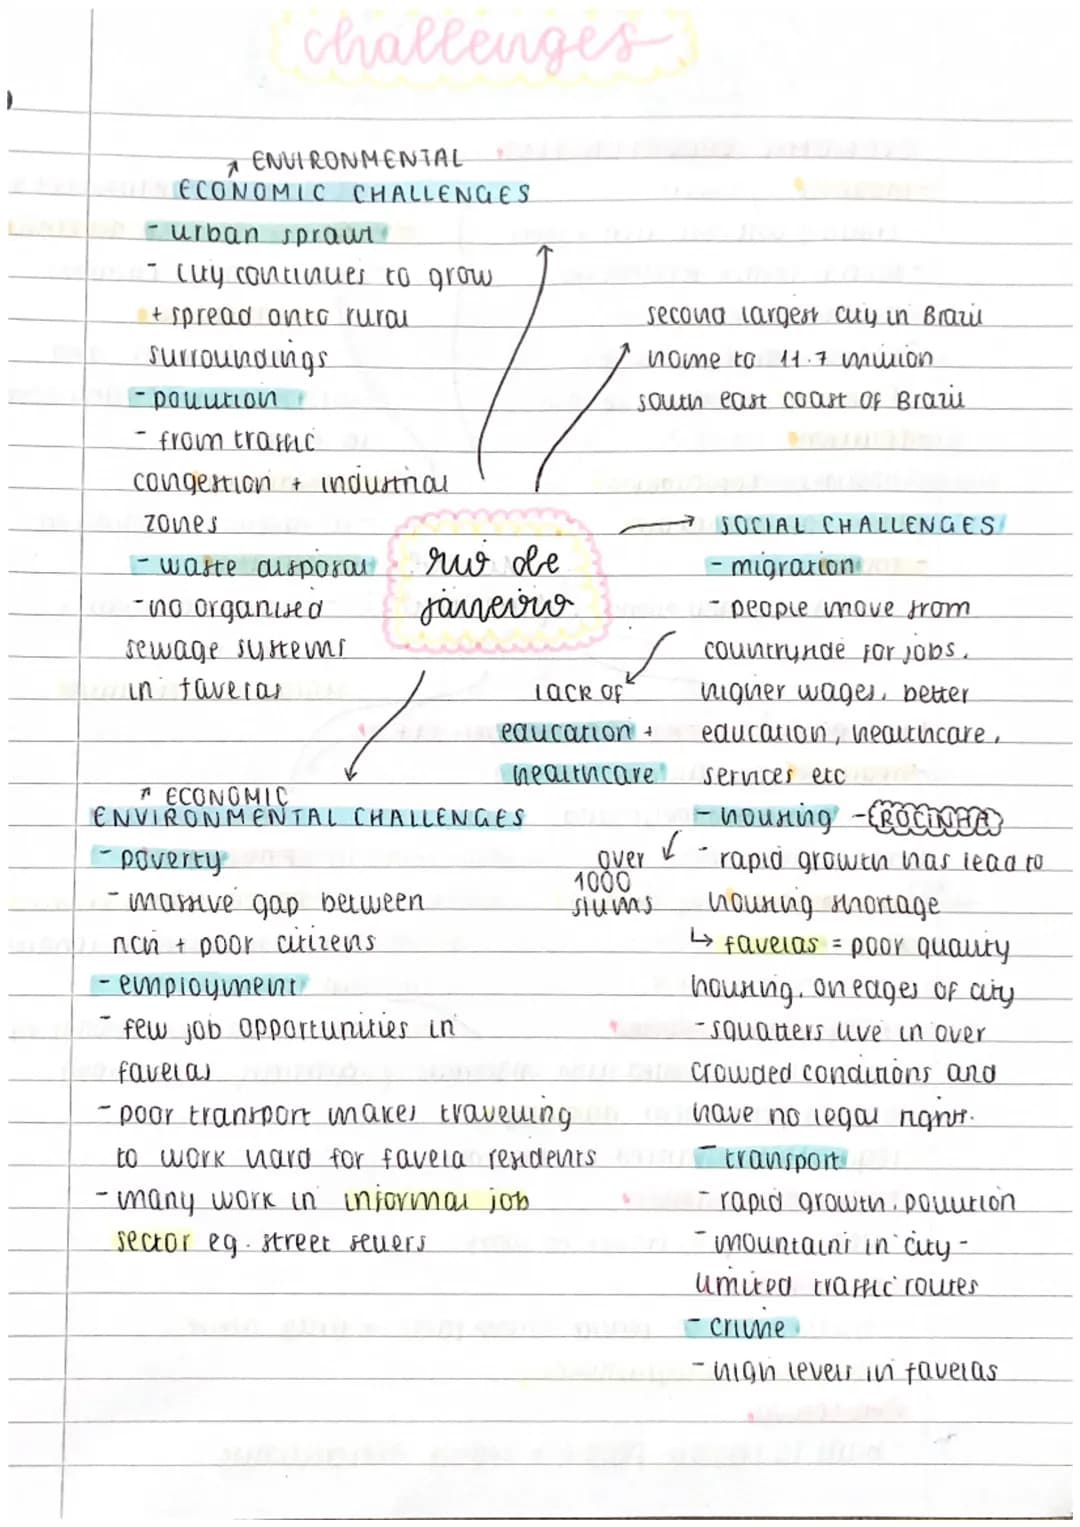 challenges
↗ ENVIRONMENTAL
ECONOMIC CHALLENGES
- urban sprawl
- city continues to grow
+ spread onto rural
surroundings
- pollution
- from traffic
congestion + industrial
zones
- waste disposal
- no organised
sewage systems
in favelas
second largest city in Brazil
home to 11.7 million
south east coast of Brazil
rio de
janeiro
→ SOCIAL CHALLENGES
- migration
- people move from
countryside for jobs,
higher wages, better
education, healthcare,
services etc
lack of
education +
healthcare
- housing - ROCINHA
- rapid growth has lead to
housing shortage
↳ favelas = poor quality
housing, on edges of city
- squatters live in over
crowded conditions and
have no legal rights.
over
1000
slums
- transport
- rapid growth, pollution
- mountains in city -
limited traffic routes
- crime
- high levels in favelas
↗ ECONOMIC
ENVIRONMENTAL CHALLENGES
- poverty
- massive gap between
rich + poor citizens
- employment
- few job opportunities in
favelas
- poor transport makes travelling
to work hard for favela residents
- many work in informal job
sector eg. street sellers